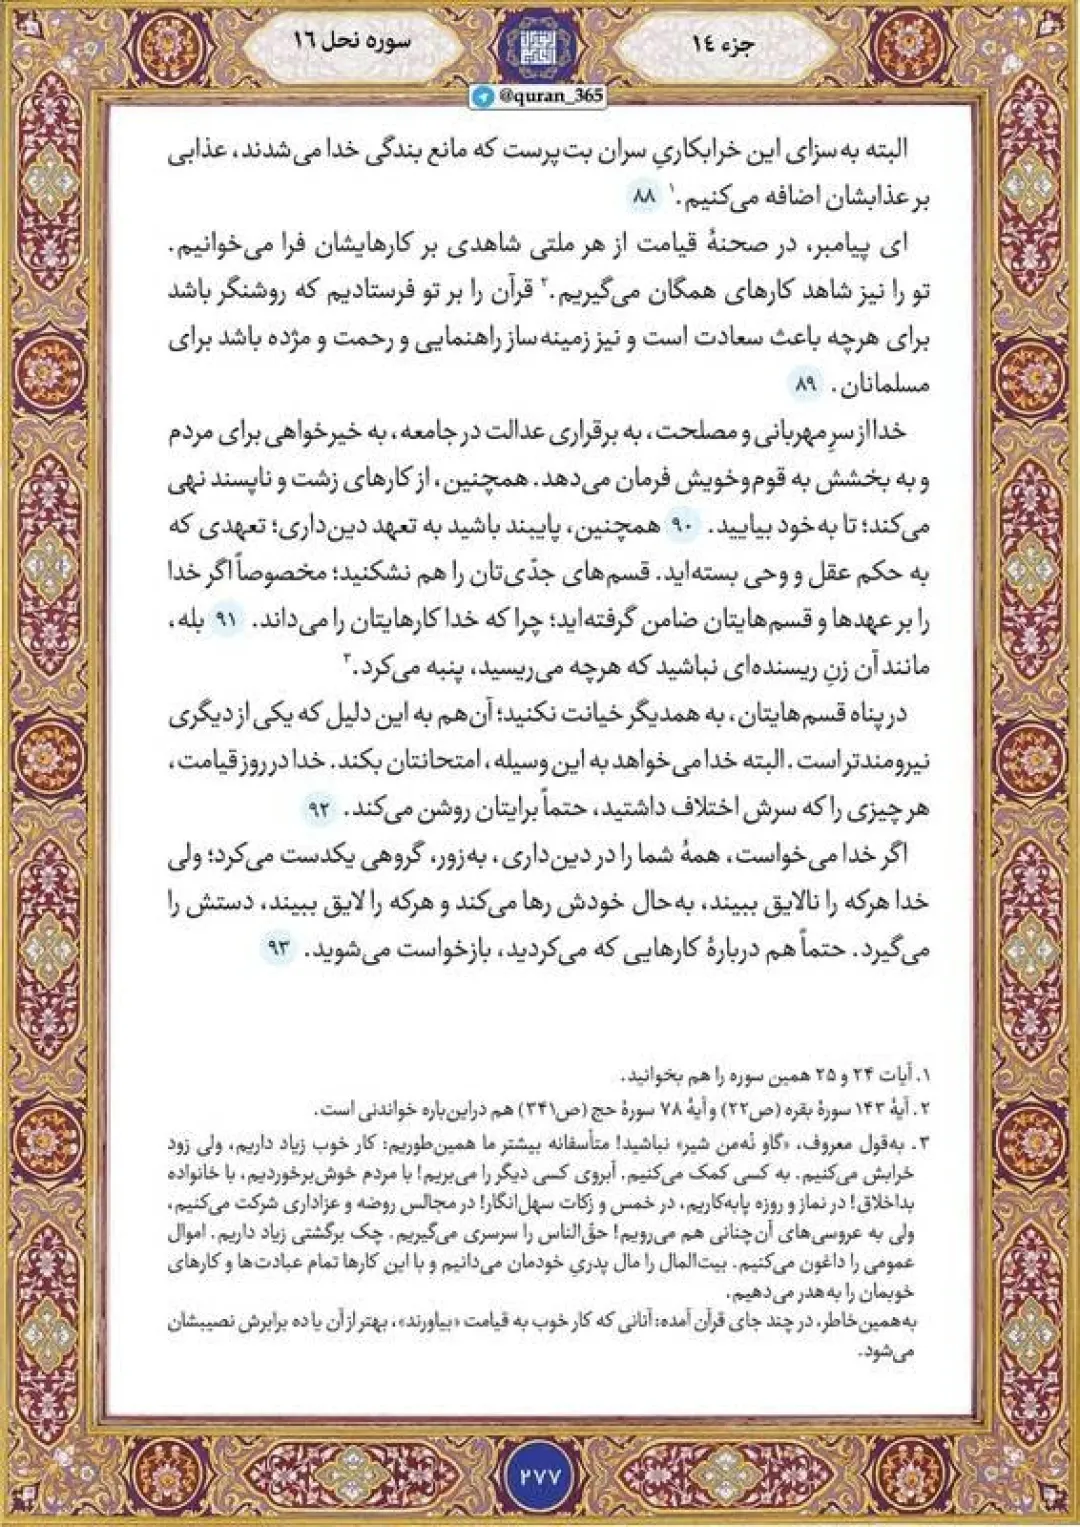 جزء ۱۴
سوره نحل ۱۶
@quran_365
البته به‌سزای این خرابکاریِ سران بت‌پرست که مانع بندگی خدا می‌شدند، عذابی
بر عذابشان اضافه می‌کنیم.۱ ۸۸
ای پیامبر، در صحنهٔ قیامت از هر ملتی شاهدی بر کارهایشان فرا می‌خوانیم.
تو را نیز شاهد کارهای همگان می‌گیریم.۲ قرآن را بر تو فرستادیم که روشنگر باشد
برای هرچه باعث سعادت است و نیز زمینه‌ساز راهنمایی و رحمت و مژده باشد برای
مسلمانان. ۸۹
خدا از سرِ مهربانی و مصلحت، به برقراری عدالت در جامعه، به خیرخواهی برای مردم
و به بخشش به قوم‌وخویش فرمان می‌دهد. همچنین، از کارهای زشت و ناپسند نهی
می‌کند؛ تا به خود بیایید. ۹۰ همچنین، پایبند باشید به تعهد دین‌داری؛ تعهدی که
به حکم عقل و وحی بسته‌اید. قسم‌های جدّی‌تان را هم نشکنید؛ مخصوصاً اگر خدا
را بر عهدها و قسم‌هایتان ضامن گرفته‌اید؛ چرا که خدا کارهایتان را می‌داند. ۹۱ بله،
مانند آن زنِ ریسنده‌ای نباشید که هرچه می‌ریسید، پنبه می‌کرد.۳
در پناه قسم‌هایتان، به همدیگر خیانت نکنید؛ آن‌هم به این دلیل که یکی از دیگری
نیرومندتر است. البته خدا می‌خواهد به این وسیله، امتحانتان بکند. خدا در روز قیامت،
هر چیزی را که سرش اختلاف داشتید، حتماً برایتان روشن می‌کند. ۹۲
اگر خدا می‌خواست، همهٔ شما را در دین‌داری، به‌زور، گروهی یکدست می‌کرد؛ ولی
خدا هرکه را نالایق ببیند، به‌حال خودش رها می‌کند و هرکه را لایق ببیند، دستش را
می‌گیرد. حتماً هم دربارهٔ کارهایی که می‌کردید، بازخواست می‌شوید. ۹۳
۱. آیات ۲۴ و ۲۵ همین سوره را هم بخوانید.
۲. آیهٔ ۱۴۳ سورهٔ بقره (ص۲۲) و آیهٔ ۷۸ سورهٔ حج (ص۳۴۱) هم دراین‌باره خواندنی است.
۳. به‌قول معروف، «گاو نُه‌من شیر» نباشید! متأسفانه بیشتر ما همین‌طوریم: کار خوب زیاد داریم، ولی زود
خرابش می‌کنیم. به کسی کمک می‌کنیم. آبروی کسی دیگر را می‌بریم! با مردم خوش‌برخوردیم، با خانواده
بداخلاق! در نماز و روزه پابه‌کاریم، در خمس و زکات سهل‌انگار! در مجالس روضه و عزاداری شرکت می‌کنیم،
ولی به عروسی‌های آن‌چنانی هم می‌رویم! حق‌الناس را سرسری می‌گیریم. چک برگشتی زیاد داریم. اموال
عمومی را داغون می‌کنیم. بیت‌المال را مال پدریِ خودمان می‌دانیم و با این کارها تمام عبادت‌ها و کارهای
خوبمان را به‌هدر می‌دهیم.
به‌همین‌خاطر، در چند جای قرآن آمده: آنانی که کار خوب به قیامت «بیاورند»، بهتر از آن یا ده برابرش نصیبشان
می‌شود.
۲۷۷